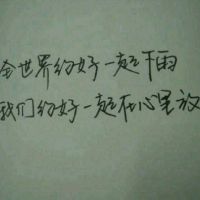 全世界约好一起下雨
我们约好一起在心里放